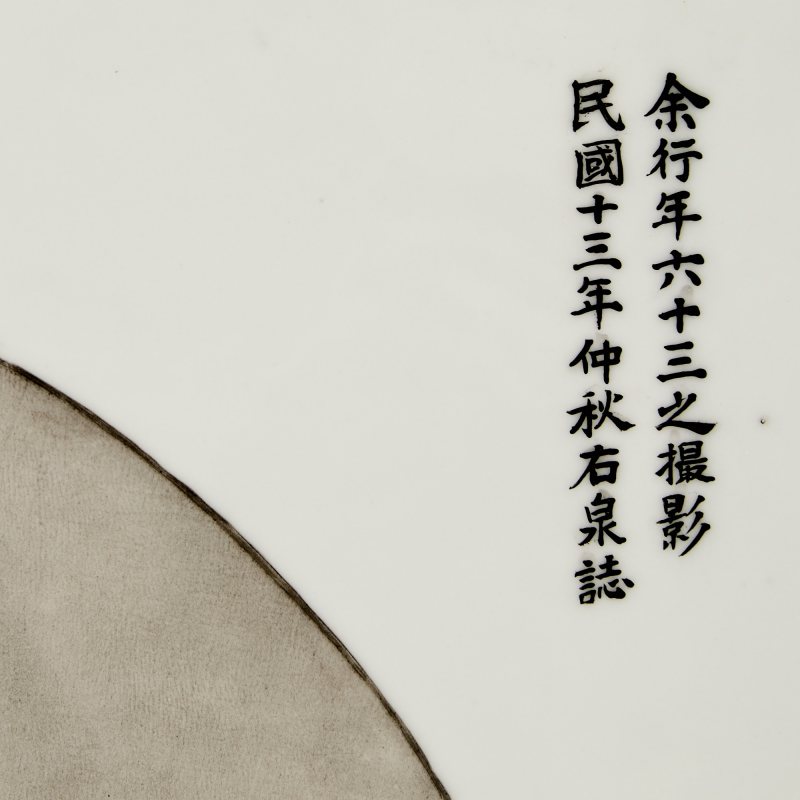 余行年六十三之撮影
民國十三年仲秋右泉誌